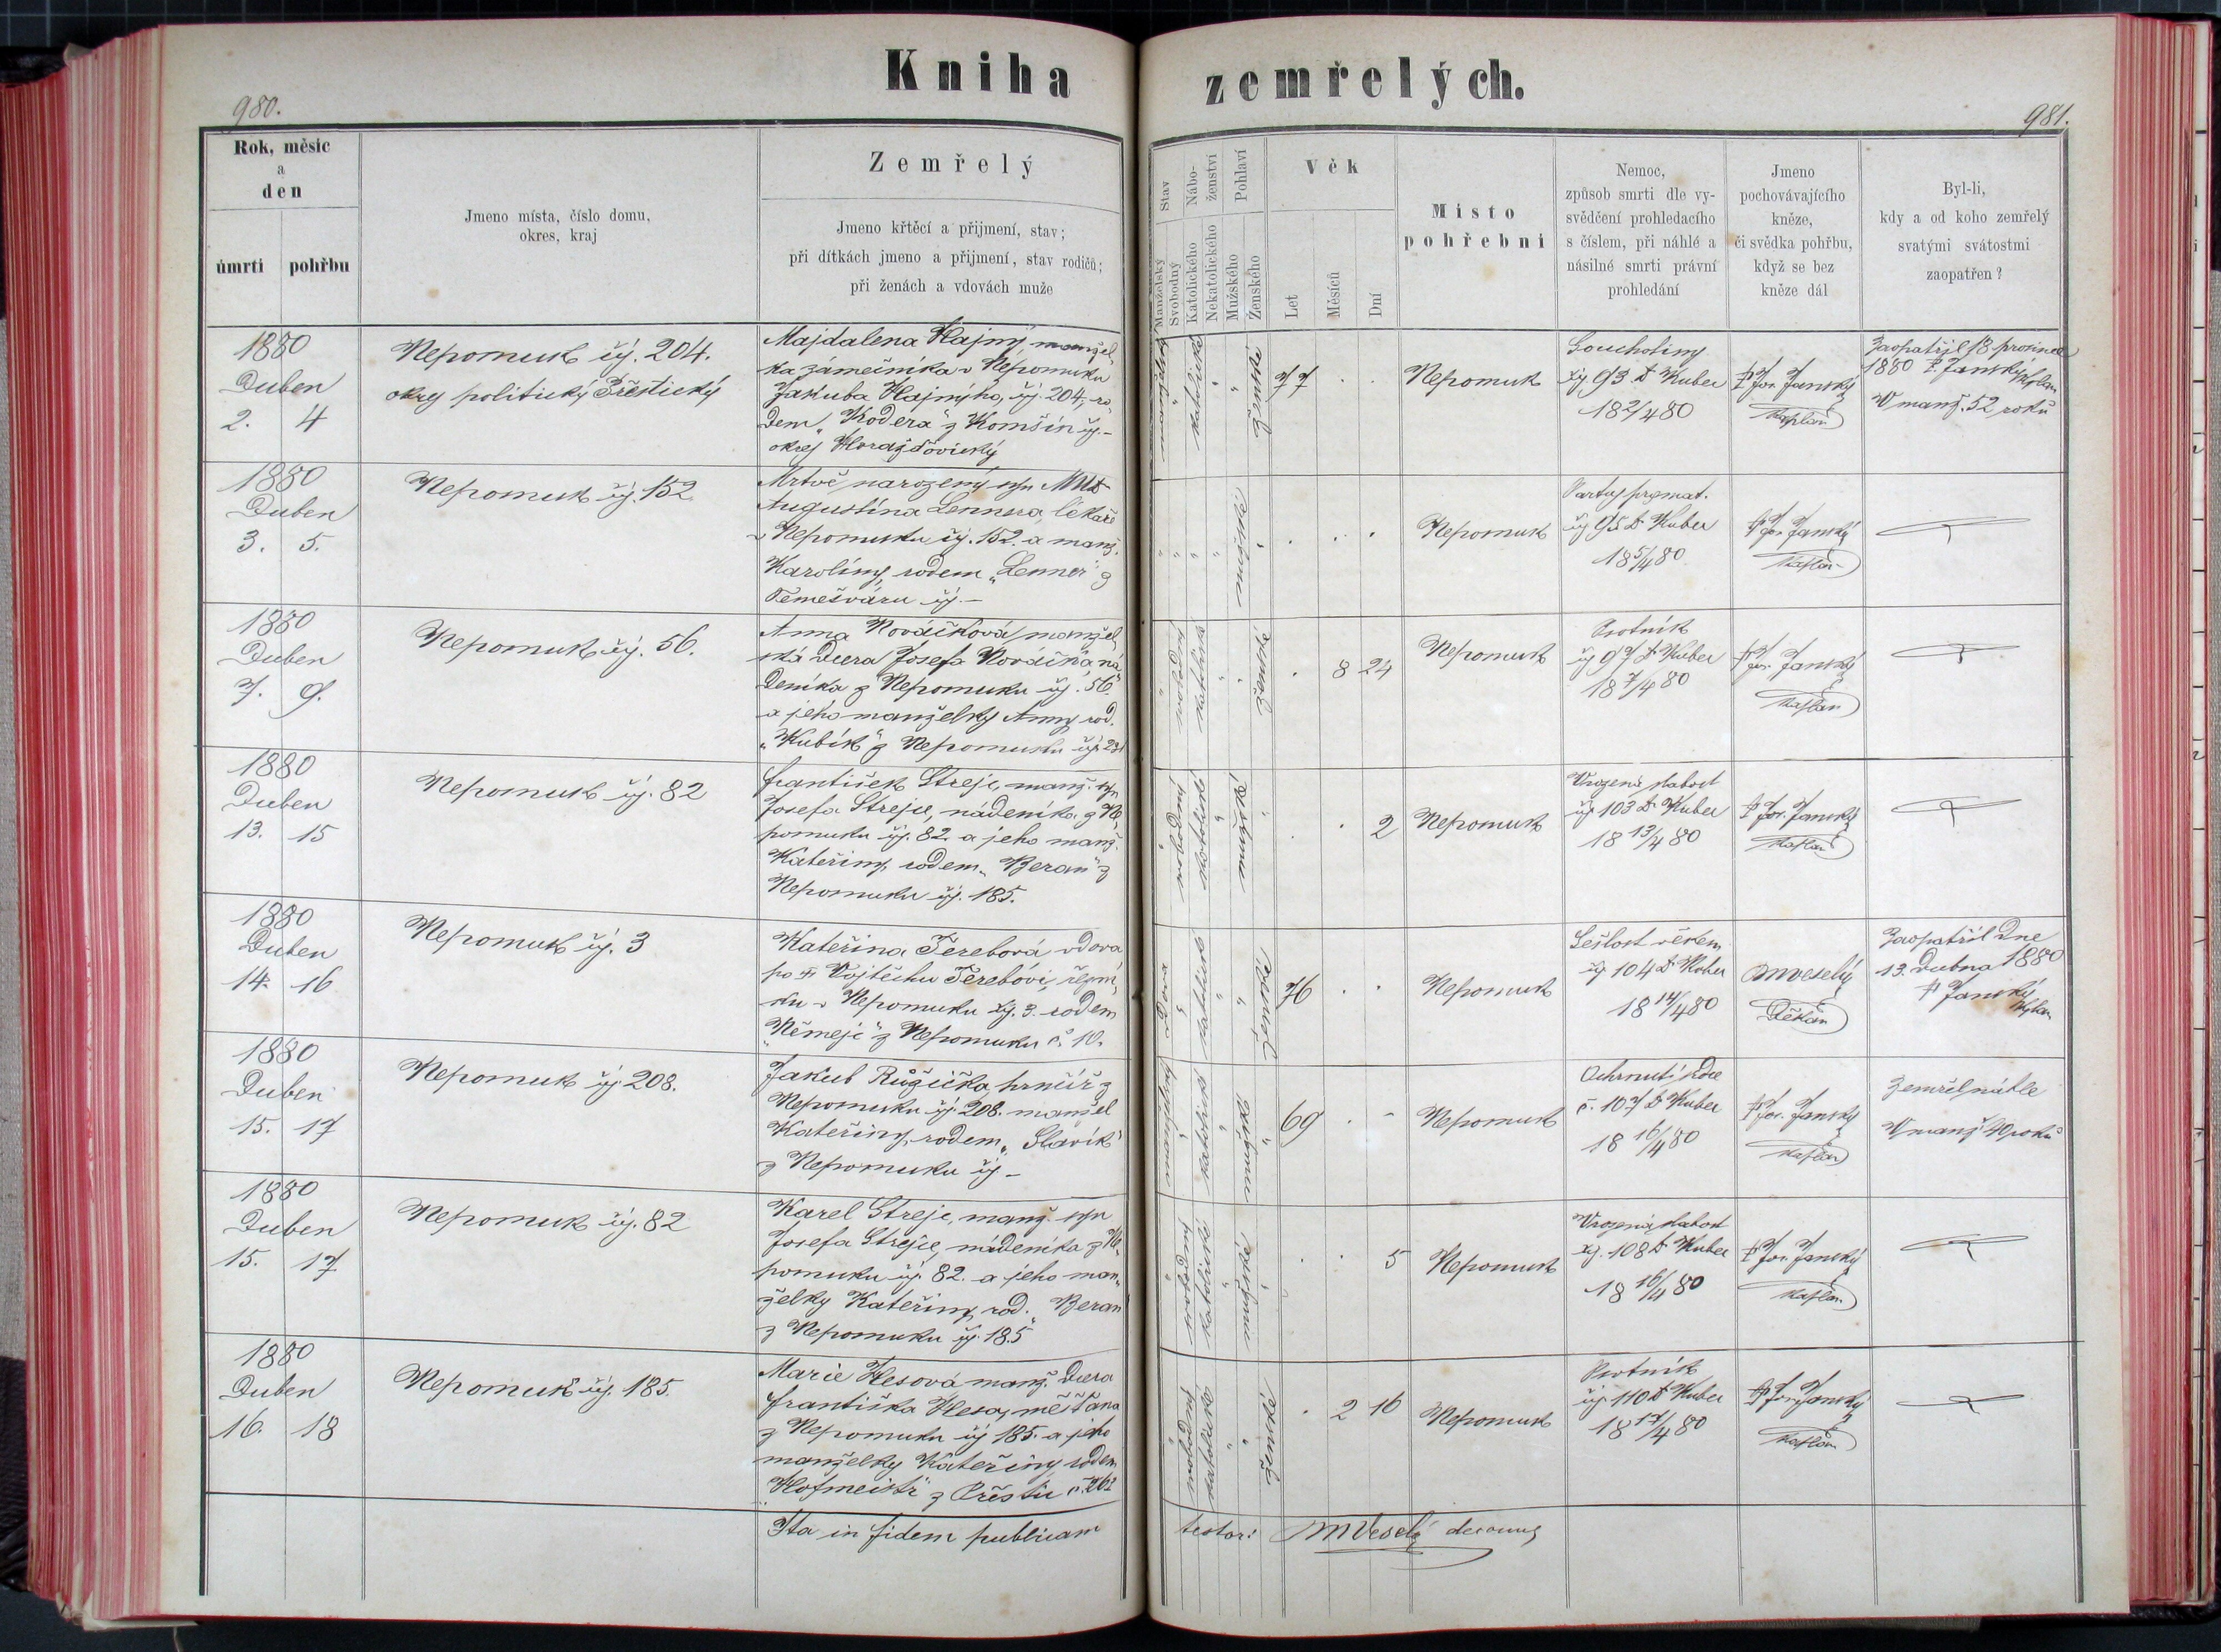 Kniha zemřelých.
980.
981.
Rok, měsíc
a
den
úmrti
pohřbu
Jmeno místa, číslo domu,
okres, kraj
Zemřelý
Jmeno křtěcí a přijmení, stav;
při dítkách jmeno a přijmení, stav rodičů;
při ženách a vdovách muže
Stav
Manželský
Svobodný
Nábo-
ženství
Katolického
Nekatolického
Pohlaví
Mužského
Ženského
Věk
Let
Měsíců
Dní
Misto
pohřebni
Nemoc,
způsob smrti dle vy-
svědčení prohledacího
s číslem, při náhlé a
násilné smrti právní
prohledání
Jmeno
pochovávajícího
kněze,
či svědka pohřbu,
když se bez
kněze dál
Byl-li,
kdy a od koho zemřelý
svatými svátostmi
zaopatřen?
1880
Duben
2. 4
Nepomuk čj. 204.
okres politický Přeštický
Majdalena Hajný manžel
ka zámečníka v Nepomuku
Jakuba Hajnýho, čj. 204, ro
dem „Kodera" z Komšín čj. –
okres Horažďovický
katolické
ženské
77
Nepomuk
Souchotiny
čj. 93 Dr Kuber
18 2/4 80
P Jos. Janský
Kaplan
Zaopatřil 18 prosince
1880 P. Janský Kaplan
V manž. 52 roků
1880
Duben
3. 5.
Nepomuk čj. 152
Mrtvě narozený syn
Augustina Lennera, lékaře
v Nepomuku čj. 152. a manž.
Karolíny, rodem „Lenner" z
Temešváru čj. –
mužské
Nepomuk
Partus premat.
čj 95 Dr Kuber
18 5/4 80
P Jos. Janský
Kaplan
1880
Duben
7. 9.
Nepomuk čj. 56.
Anna Nováčková manžel
ská dcera Josefa Nováčka ná
deníka z Nepomuku čj. 56.
a jeho manželky Anny rod.
„Kubík" z Nepomuku čj.
svobodný
katolické
ženské
8 24
Nepomuk
Psotník
čj 97 Dr Kuber
18 7/4 80
P Jos. Janský
Kaplan
1880
Duben
13. 15
Nepomuk čj. 82
František Strejc, manž. syn
Josefa Strejce, nádeníka z Ne
pomuku čj. 82. a jeho manž.
Kateřiny, rodem „Beran" z
Nepomuku čj. 185.
svobodný
katolické
mužské
2
Nepomuk
Vrozená slabost
čj. 103 Dr Kuber
18 13/4 80
P Jos. Janský
Kaplan
1880
Duben
14. 16
Nepomuk čj. 3
Kateřina Terebová vdova
po Vojtěchu Terebovi, řezní
ku v Nepomuku čj. 3. rodem
„Němejc" z Nepomuku č. 10.
vdova
katolické
ženské
76
Nepomuk
Sešlost věkem
čj 104 Dr Kuber
18 14/4 80
M Veselý
Děkan
Zaopatřil dne
13. Dubna 1880
P Janský
Kaplan
1880
Duben
15. 17
Nepomuk čj 208.
Jakub Růžička, hrnčíř z
Nepomuku čj. 208. manžel
Kateřiny, rodem „Slavík"
z Nepomuku čj –
katolické
mužské
69
Nepomuk
Ochrnutí srdce
č. 107 Dr Kuber
18 16/4 80
P Jos. Janský
Kaplan
Zemřel náhle
V manž 40 roků
1880
Duben
15. 17
Nepomuk čj. 82
Karel Strejc, manž. syn
Josefa Strejce, nádeníka z Ne
pomuku čj. 82. a jeho man
želky Kateřiny, rod. „Beran
z Nepomuku čj. 185
svobodný
katolické
mužské
5
Nepomuk
Vrozená slabost
čj. 108 Dr Kuber
18 16/4 80
P Jos. Janský
Kaplan
1880
Duben
16. 18
Nepomuk čj. 185.
Marie Hesová manž. dcera
Františka Hesa, měšťana
z Nepomuku čj 185. a jeho
manželky Kateřiny rodem
„Hofmeistr" z Přeštic č.
svobodný
katolické
ženské
2 16
Nepomuk
Psotník
čj. 110 Dr Kuber
18 17/4 80
P Jos. Janský
Kaplan
Ita in fidem publicam testor: M Veselý decanus